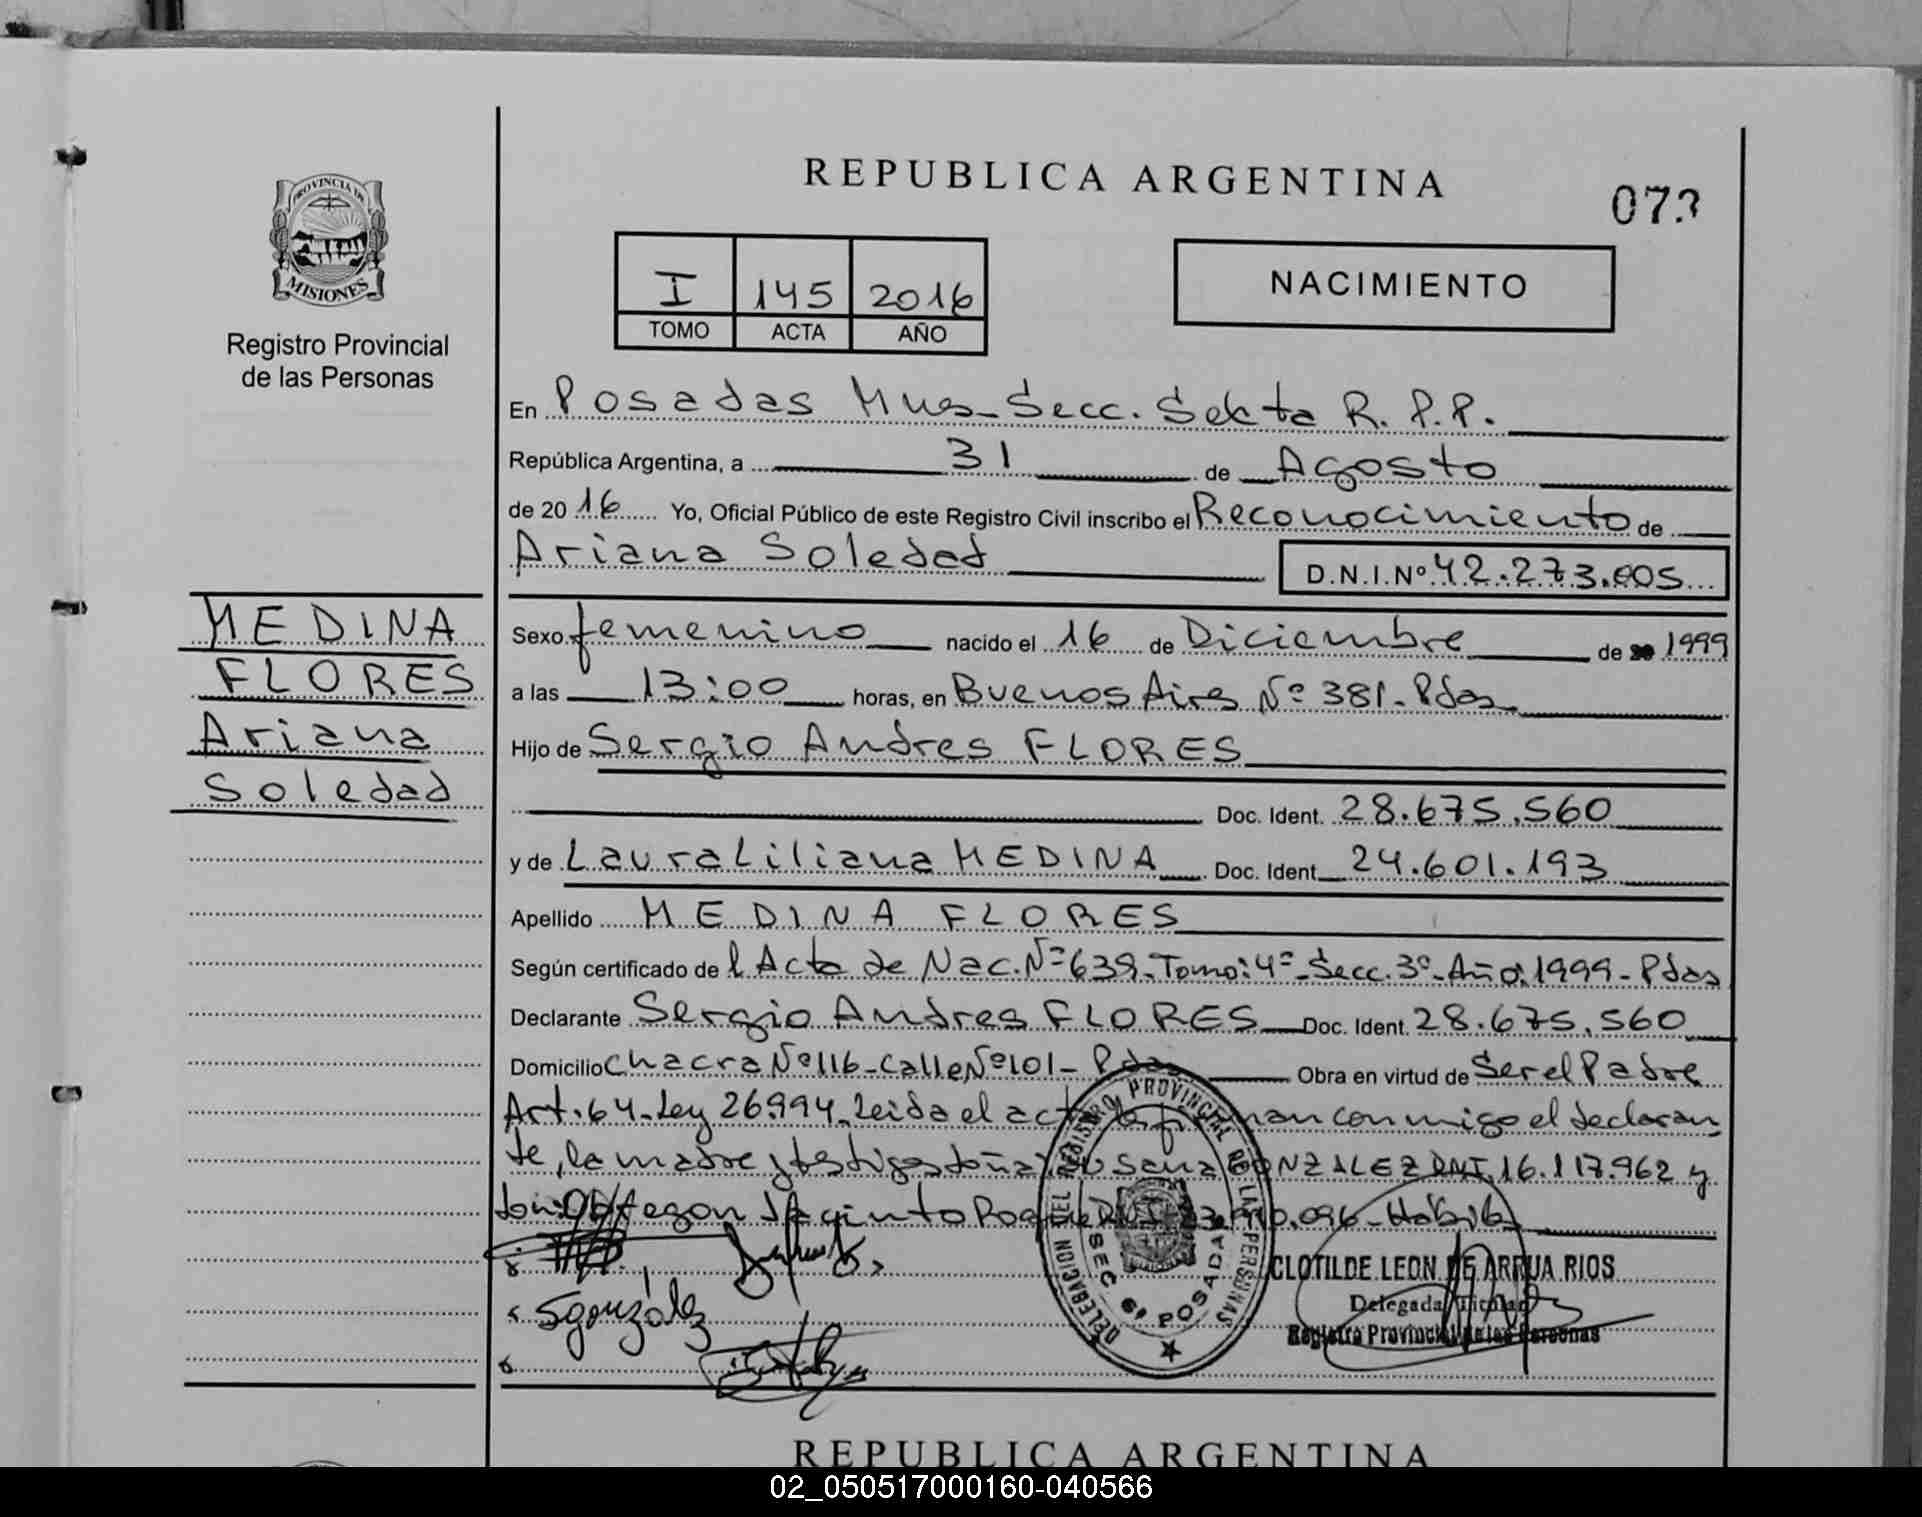 REPUBLICA ARGENTINA
073
PROVINCIA DE
MISIONES
Registro Provincial
de las Personas
I 145 2016
TOMO ACTA AÑO
NACIMIENTO
En Posadas Mnes - Secc. Sekta R. P. P.
República Argentina, a 31 de Agosto
de 2016 Yo, Oficial Público de este Registro Civil inscribo el Reconocimiento de
Ariana Soledad D.N.I.Nº 42.273.005
MEDINA
FLORES
Ariana
Soledad
Sexo femenino nacido el 16 de Diciembre de 1999
a las 13:00 horas, en Buenos Aires Nº 381 - Pdas
Hijo de Sergio Andres FLORES
Doc. Ident. 28.675.560
y de Laura Liliana MEDINA Doc. Ident 24.601.193
Apellido MEDINA FLORES
Según certificado de l Acta de Nac. Nº 639 - Tomo: 4º - Secc. 3º - Año: 1999 - Pdas
Declarante Sergio Andres FLORES Doc. Ident. 28.675.560
Domicilio Chacra Nº 116 - Calle Nº 101 - Pdas Obra en virtud de Ser el Padre
Art. 64 - Ley 26994 - Leida el acta la firman conmigo el declaran
te, la madre y testigos doña: Susana GONZALEZ DNI. 16.117.962 y
don: Obregon Jacinto Roque DNI .096 - Habib
Sgonzalez
DELEGACION DEL REGISTRO PROVINCIAL DE LAS PERSONAS
SEC. 6ª POSADAS
CLOTILDE LEON DE ARRUA RIOS
Delegada Titular
Registro Provincial de las Personas
REPUBLICA ARGENTINA
02_050517000160-040566